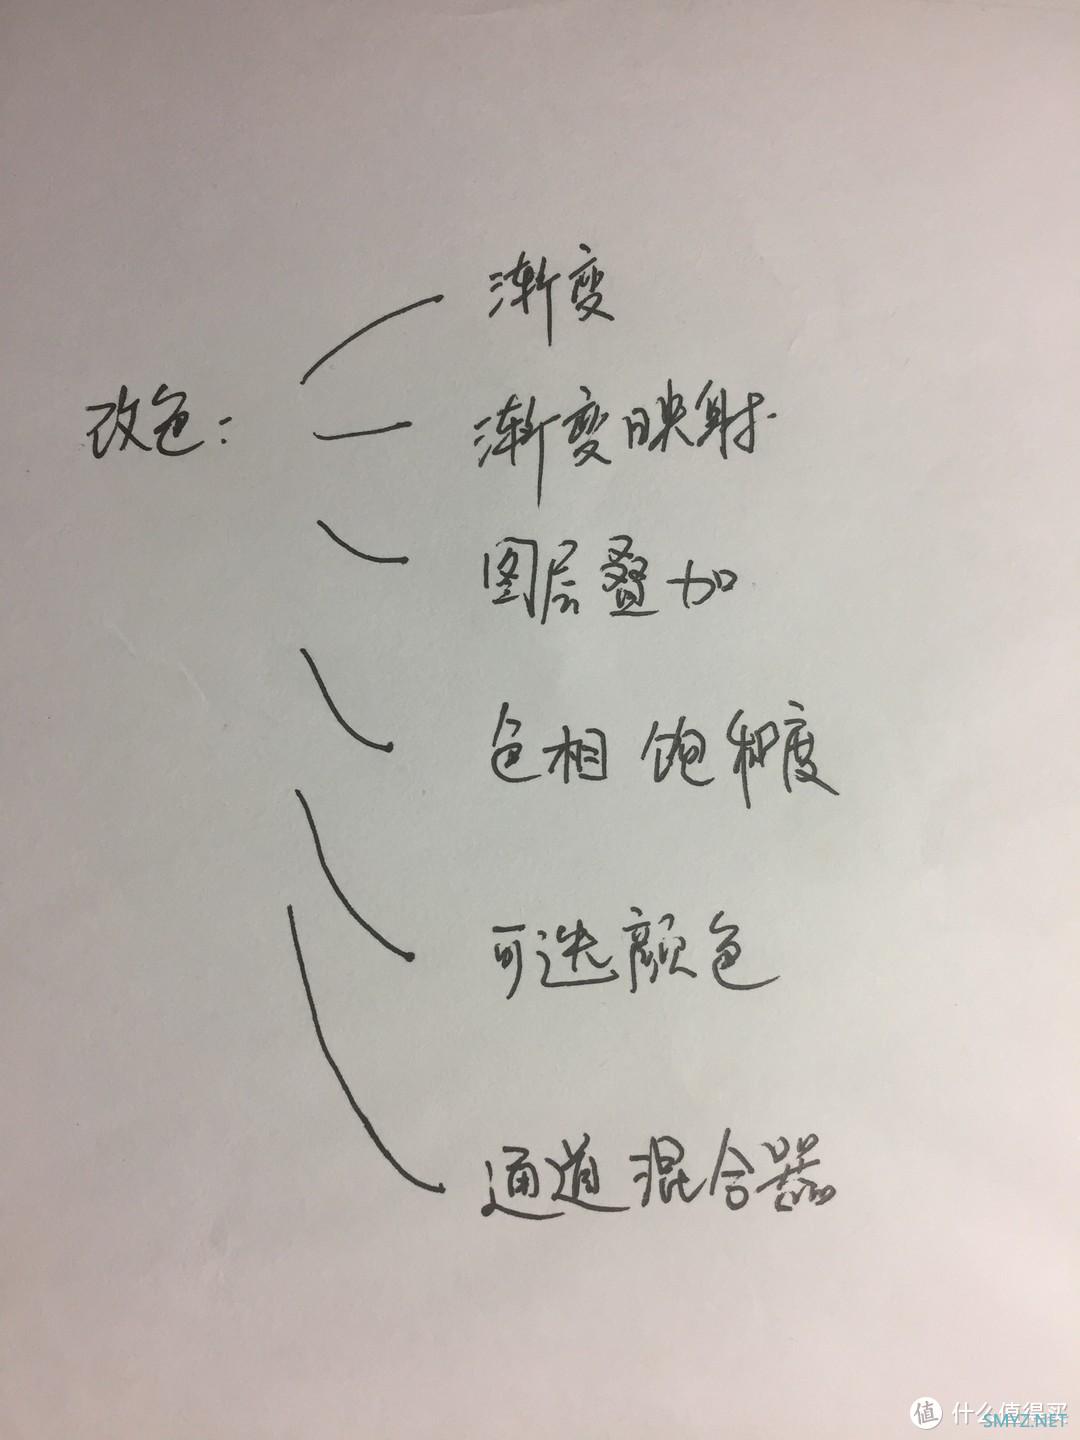 渐变
改色：
渐变映射
图层叠加
色相 饱和度
可选颜色
通道混合器
值 什么值得买
SMYZ.NET